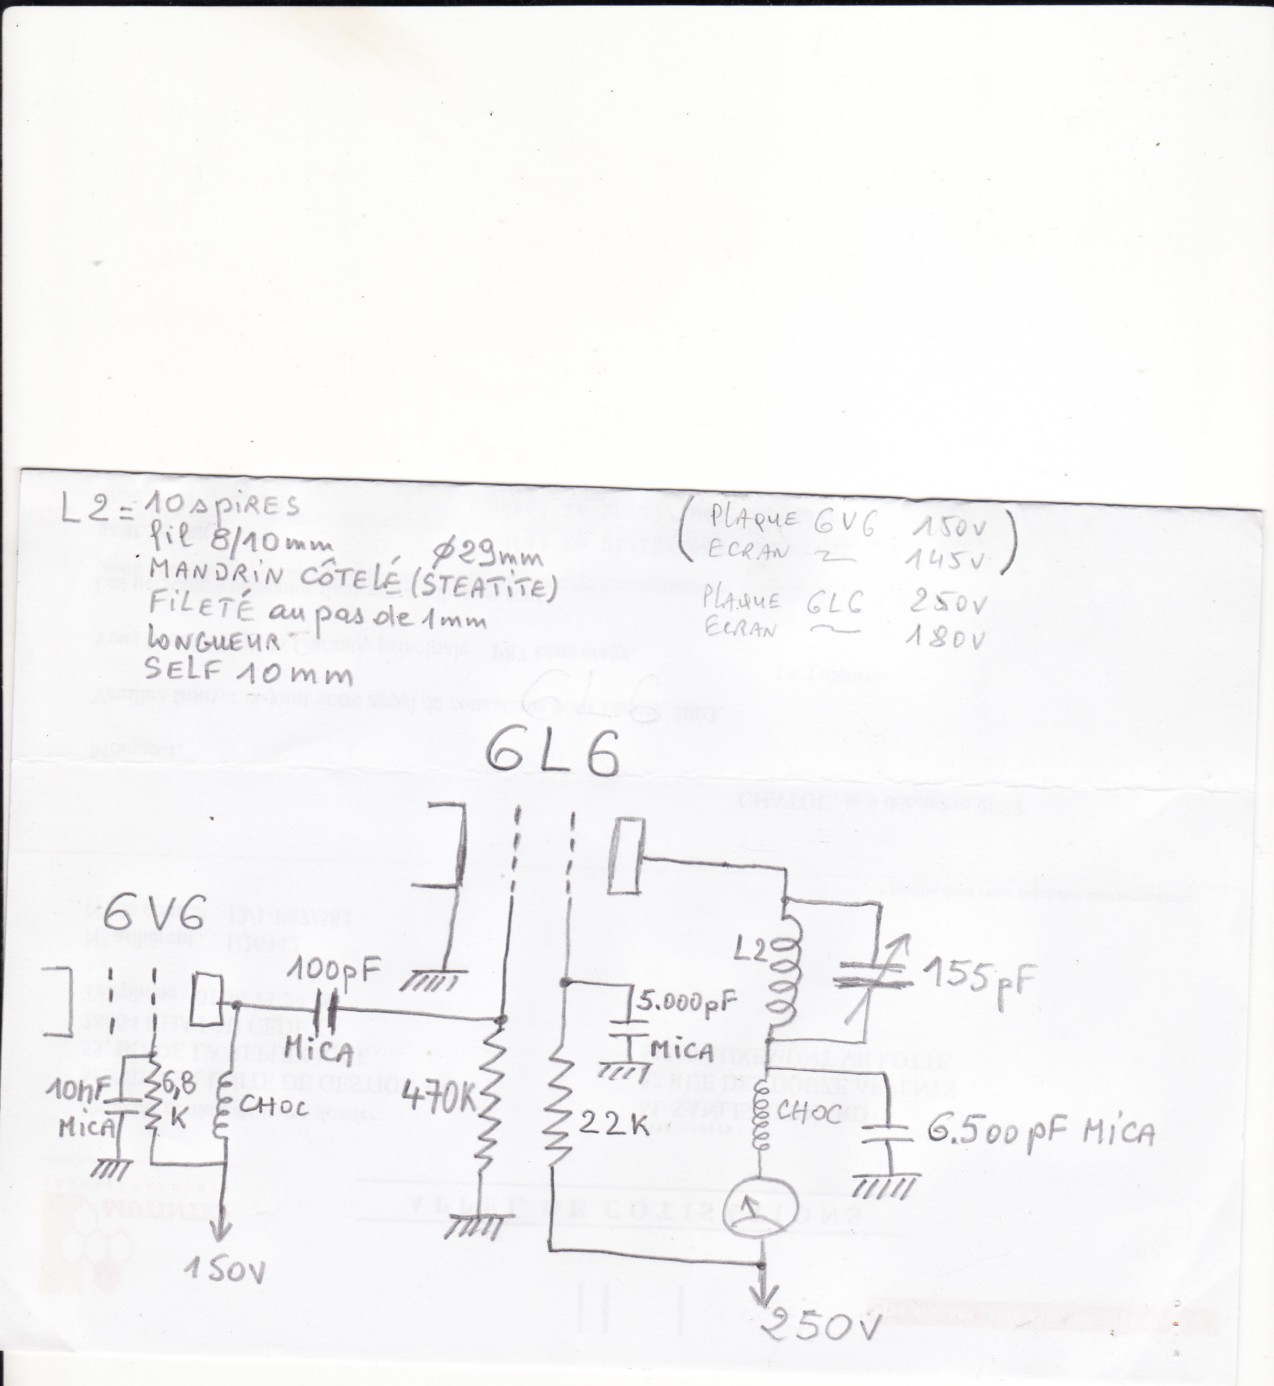 L2 = 10 spires
fil 8/10 mm
MANDRIN CÔTELÉ (STEATITE) ϕ29mm
FILETÉ au pas de 1mm
LONGUEUR
SELF 10 mm
(PLAQUE 6V6 150V)
ECRAN ~ 145V
PLAQUE 6L6 250V
ECRAN ~ 180V
6L6
6L6
6V6
100pF
MICA
10nF
MICA
6,8
K
CHOC
150V
470K
5.000pF
MICA
22K
L2
155pF
CHOC
6.500pF MICA
250V